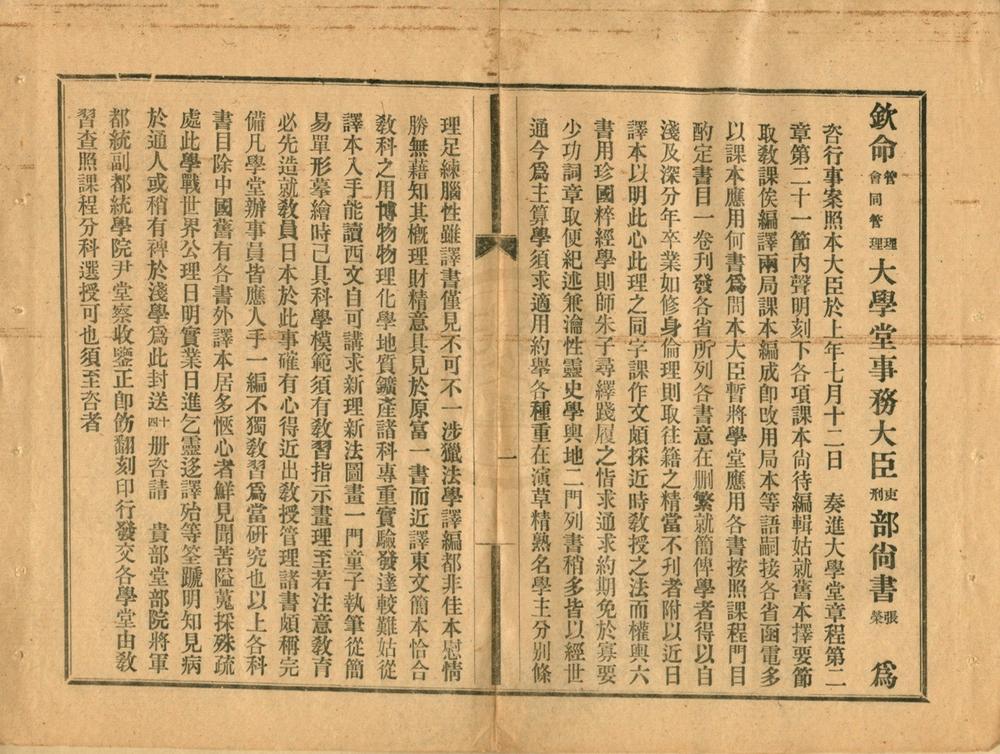 欽命管理會同管理大學堂事務大臣吏刑部尙書張榮 爲
咨行事案照本大臣於上年七月十二日 奏進大學堂章程第二
章第二十一節內聲明刻下各項課本尙待編輯姑就舊本擇要節
取敎課俟編譯兩局課本編成卽改用局本等語嗣接各省函電多
以課本應用何書爲問本大臣暫將學堂應用各書按照課程門目
酌定書目一卷刊發各省所列各書意在刪繁就簡俾學者得以自
淺及深分年卒業如修身倫理則取往籍之精當不刊者附以近日
譯本以明此心此理之同字課作文頗採近時敎授之法而權輿六
書用珍國粹經學則師朱子尋繹踐履之恉求通求約期免於寡要
少功詞章取便紀述兼瀹性靈史學輿地二門列書稍多皆以經世
通今爲主算學須求適用約舉各種重在演草精熟名學主分別條
一
理足練腦性雖譯書僅見不可不一涉獵法學譯編都非佳本慰情
勝無藉知其槪理財精意具見於原富一書而近譯東文簡本恰合
敎科之用博物物理化學地質鑛產諸科專重實驗發達較難姑從
譯本入手能讀西文自可講求新理新法圖畫一門童子執筆從簡
易單形摹繪時已具科學模範須有敎習指示畫理至若注意敎育
必先造就敎員日本於此事確有心得近出敎授管理諸書頗稱完
備凡學堂辦事員皆應人手一編不獨敎習爲當硏究也以上各科
書目除中國舊有各書外譯本居多愜心者鮮見聞苦隘蒐採殊疏
處此學戰世界公理日明實業日進乞靈迻譯殆等筌蹏明知見病
於通人或稍有裨於淺學爲此封送十四册咨請 貴部堂部院將軍
都統副都統學院尹堂察收鑒正卽飭翻刻印行發交各學堂由敎
習查照課程分科選授可也須至咨者